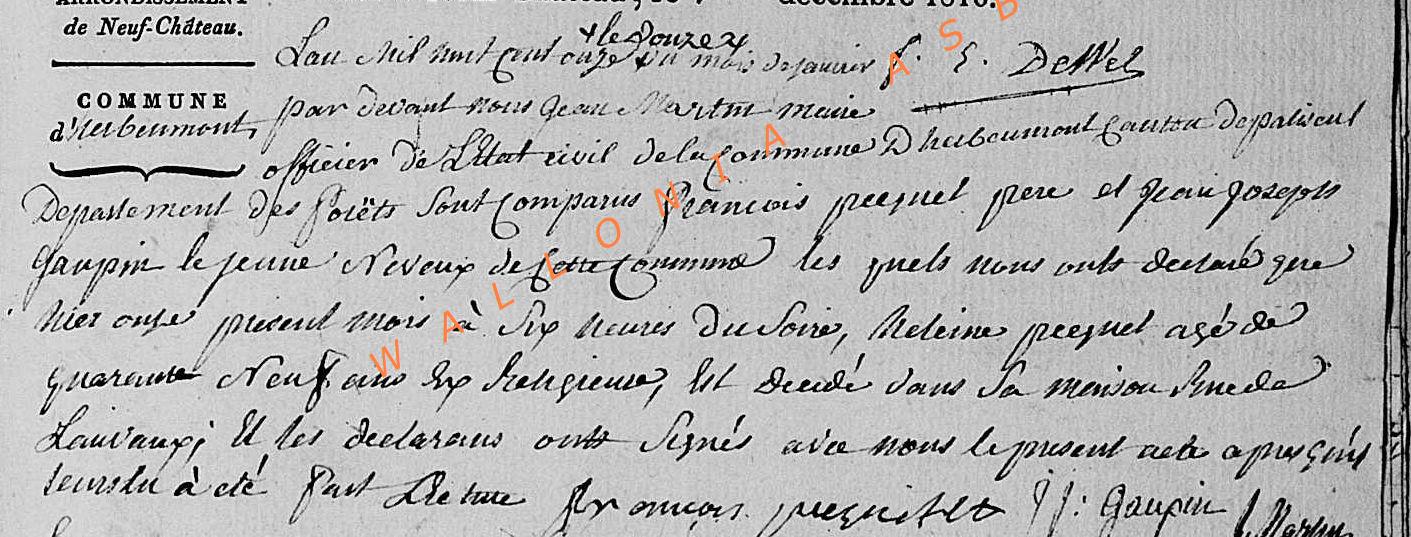 ARRONDISSEMENT
de Neuf-Château.
décembre 1810.
COMMUNE
d'herbeumont,
+ le douze +
L'an Mil huit Cent onze du mois de janvier
par devant nous jean Martin maire
officier de L'Etat civil de la Commune D'herbeumont Canton de paliseul
Departement des forêts sont Comparus francois pecquet pere et jean joseph
Gaupin le jeune Neveux de Cette Commune les quels nous onts declaré que
hier onze present mois à six heures du Soire, heleine pecquet agé de
quarante Neuf ans Ex Religieuse, Est decidé dans sa maison Rue de
Lauvaux; Et les declarans onts signés avec nous le present acte apres qu'il
leurs lu à eté fait Lecture francois J J: Gaupin J Martin
WALLONIA ASB